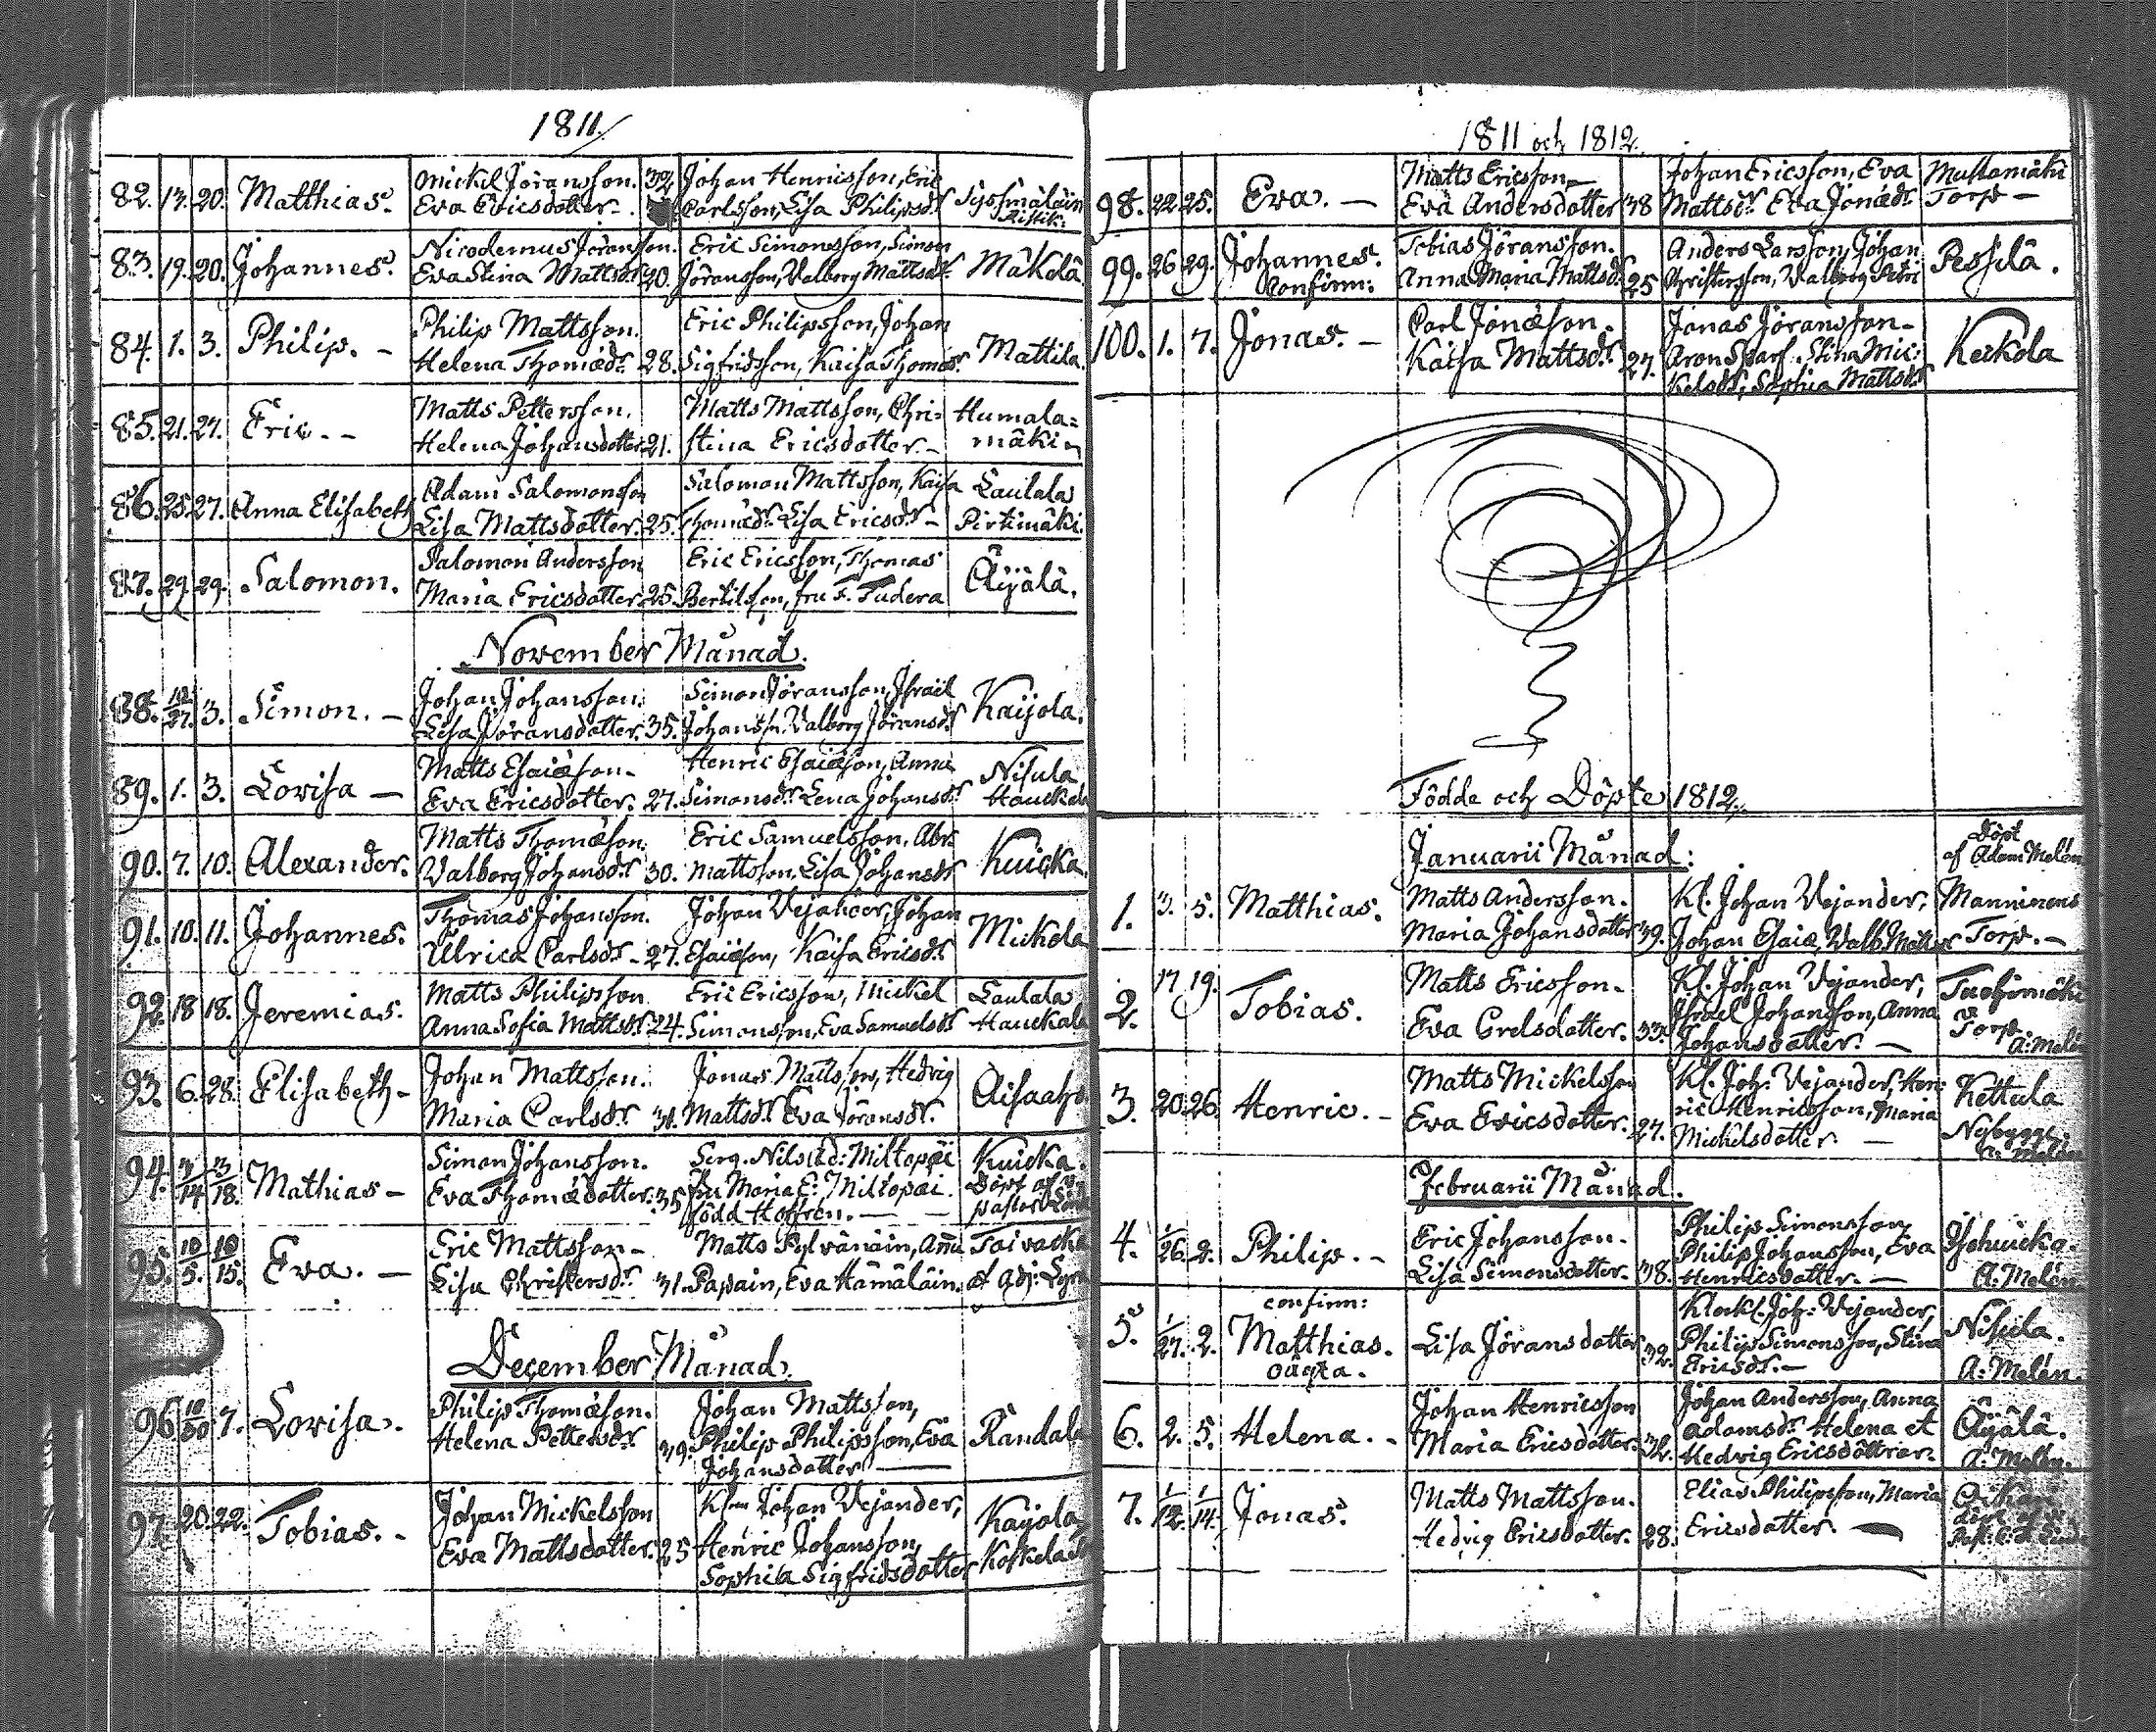 1811.
82. 13. 20. Matthias. Mickel Jöransson. 32 Johan Henricsson, Eric
Eva Ericsdotter. Carlsson, Lisa Philipsdr Syssmäläin
83. 19. 20. Johannes. Nicodemus Jöransson. Eric Simonsson, Simon
Eva Stina Mattsdr 20. Jöransson, Valborg Mattsdr. Mäkelä
84. 1. 3. Philip. - Philip Mattsson. Eric Philipsson, Johan
Helena Thomædr 28. Sigfridsson, Kaisa Thomædr. Mattila.
85. 21. 27. Eric. - Matts Pettersson. Matts Mattsson, Chri-
Helena Johansdotter 21. stina Ericsdotter. - Humala=
mäki -
86. 25. 27. Anna Elisabeth Adam Salomonsson Salomon Mattsson, Kaisa Laulala
Lisa Mattsdotter. 25. Thomædr Lisa Ericsdr - Pirtimäki.
87. 29. 29. Salomon. Salomon Andersson Eric Ericsson, Thomas
Maria Ericsdotter 25. Bertilsson, fru F. Tudera Äijälä.
November Månad.
88. 10/27. 3. Simon. - Johan Johansson. Simon Jöransson, Israel
Lisa Jöransdotter. 35. Johanss. Valborg Jöransdr Kaijola.
89. 1. 3. Lovisa - Matts Esaiæson - Henric Esaiæson, Anna Nisula
Eva Ericsdotter. 27. Simonsdr Lena Johansdr Hauckala
90. 7. 10. Alexander. Matts Thomæson. Eric Samuelsson, Abr.
Valborg Johansdr 30. Mattsson, Lisa Johansdr Kuicka.
91. 10. 11. Johannes. Thomas Johansson. Johan Vejander, Johan
Ulrica Carlsdr - 27. Esaiæson, Kaisa Ericsdr. Mickola
92. 18 18. Jeremias. Matts Philipsson Eric Ericsson, Mickel Laulala
Anna Sofia Mattsdr 24. Simonsson, Eva Samuelsdr Hauckala
93. 6. 28. Elisabeth - Johan Mattsson. Jonas Mattsson, Hedvig
Maria Carlsdr. 31. Mattsdr Eva Jöransdr. Aisaaho
94. 3/14 3/18. Mathias - Simon Johansson. Serg. Nils Ad: Miltopæi Kuicka.
Eva Thomædotter. 35 fru Maria E: Miltopæi. Döpt af
född Hoffren. -
95. 10/5. 10/15. Eva. - Eric Mattsson - Matts Pylvänäin, Anna Taivacka
Lisa Christersdr 31. Papain, Eva Hämäläin. af Adj:
December Månad.
96 10/30 7. Lovisa. Philip Thomæson. Johan Mattsson,
Helena Pettersdr 39. Philip Philipsson, Eva Randala
Johansdotter
97. 20. 22. Tobias. - Johan Mickelsson Johan Vejander, Kaijola
Eva Mattsdotter. 25 Henric Johansson, Koskela
Sophia Sigfridsdotter
1811 och 1812.
98. 22. 25. Eva. - Matts Ericsson - Johan Ericsson, Eva Muttamäki
Eva Andersdotter 38 Mattsdr Eva Jonædr. Torp -
99. 26 29. Johannes. Tobias Jöransson. Anders Larsson, Johan
Confirm: Anna Maria Mattsdr 25 Christersson, Valborg Petri Pessilä.
100. 1. 7. Jonas. - Carl Jonæson. Jonas Jöransson -
Kaisa Mattsdr 27. Aron Skarf. Stina Mic= Keckola
kelsdr, Sophia Mattsdr
Födde och Döpte 1812.
Januarii Månad: Döpt
af Adam Melén
1. 3. 5. Matthias. Matts Andersson. Kl. Johan Vejander, Manninens
Maria Johansdotter 39. Johan Esaiæ, Valb. Mattsdr Torp. -
2. 17 19. Tobias. Matts Ericsson - Kl. Johan Vejander,
Eva Grelsdotter. 33. Israel Johansson, Anna Torp.
Johansdotter. - A: Melén
3. 20. 26. Henric. - Matts Mickelsson Kl. Joh: Vejander, Hen= Kettula
Eva Ericsdotter. 27. ric Henricsson, Maria Nybygge.
Mickelsdotter - A: Melén
Februarii Månad.
4. 1/26. 2. Philip. - Eric Johansson. Philip Simonsson,
Lisa Simonsdotter. 38. Philip Johansson, Eva Isohuicka.
Henricsdotter. - A: Melén
5. 1/27. 2. confirm: Klock. Joh: Vejander,
Matthias. Lisa Jöransdotter 32. Philip Simonsson, Stina Nisula.
oäcta. Ericsdr. - A: Melén.
6. 2. 5. Helena. - Johan Henricsson Johan Andersson, Anna
Maria Ericsdotter. 32. Adamsdr Helena et Äijälä.
Hedvig Ericsdöttrar. A: Melén.
7. 1/12. 1/14. Jonas. Matts Mattsson. Elias Philipsson, Maria
Hedvig Ericsdotter. 28. Ericsdotter. -